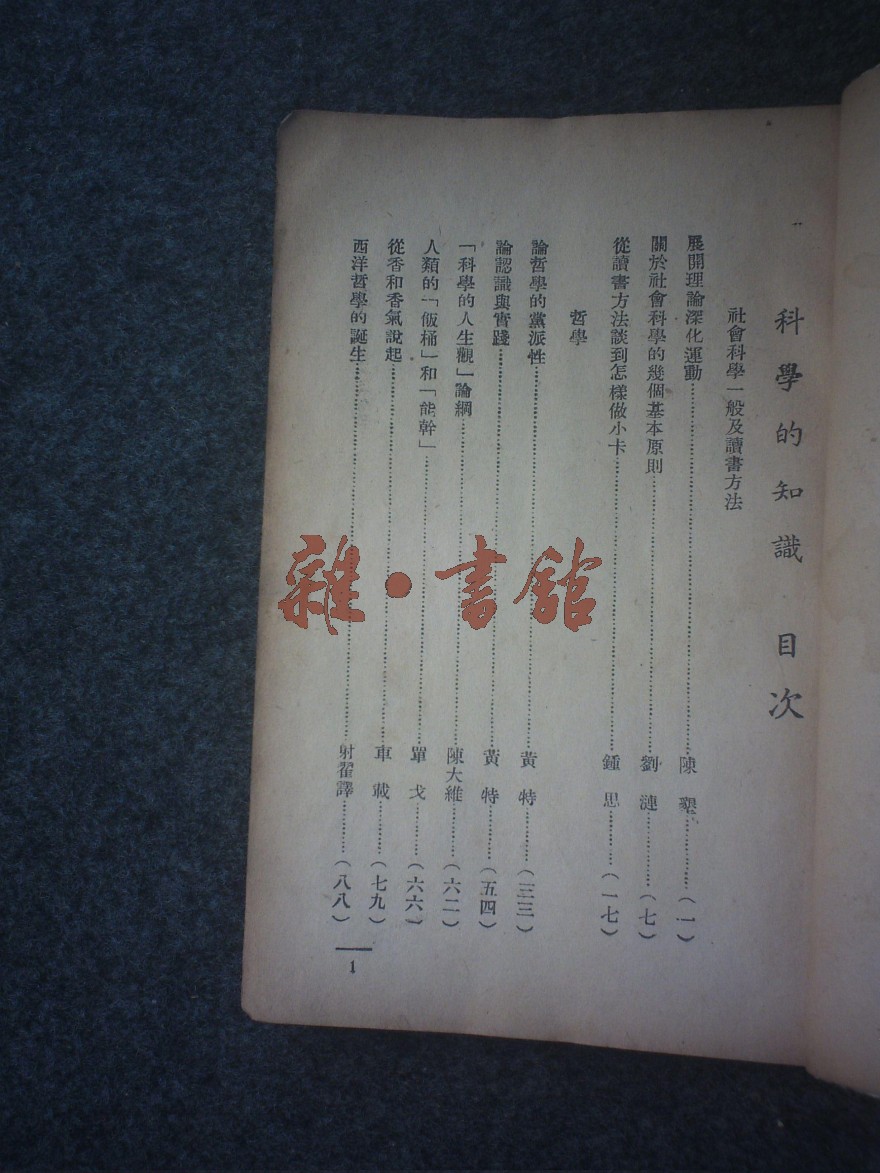 科學的知識 目次
社會科學一般及讀書方法
展開理論深化運動……陳墾……(一)
關於社會科學的幾個基本原則……劉漣……(七)
從讀書方法談到怎樣做小卡……鍾思……(一七)
哲學
論哲學的黨派性……黃特……(三三)
論認識與實踐……黃特……(五四)
「科學的人生觀」論綱……陳大維……(六二)
人類的「飯桶」和「能幹」……單戈……(六六)
從香和香氣說起……車載……(七九)
西洋哲學的誕生……射翟譯……(八八)
1
雜·書館